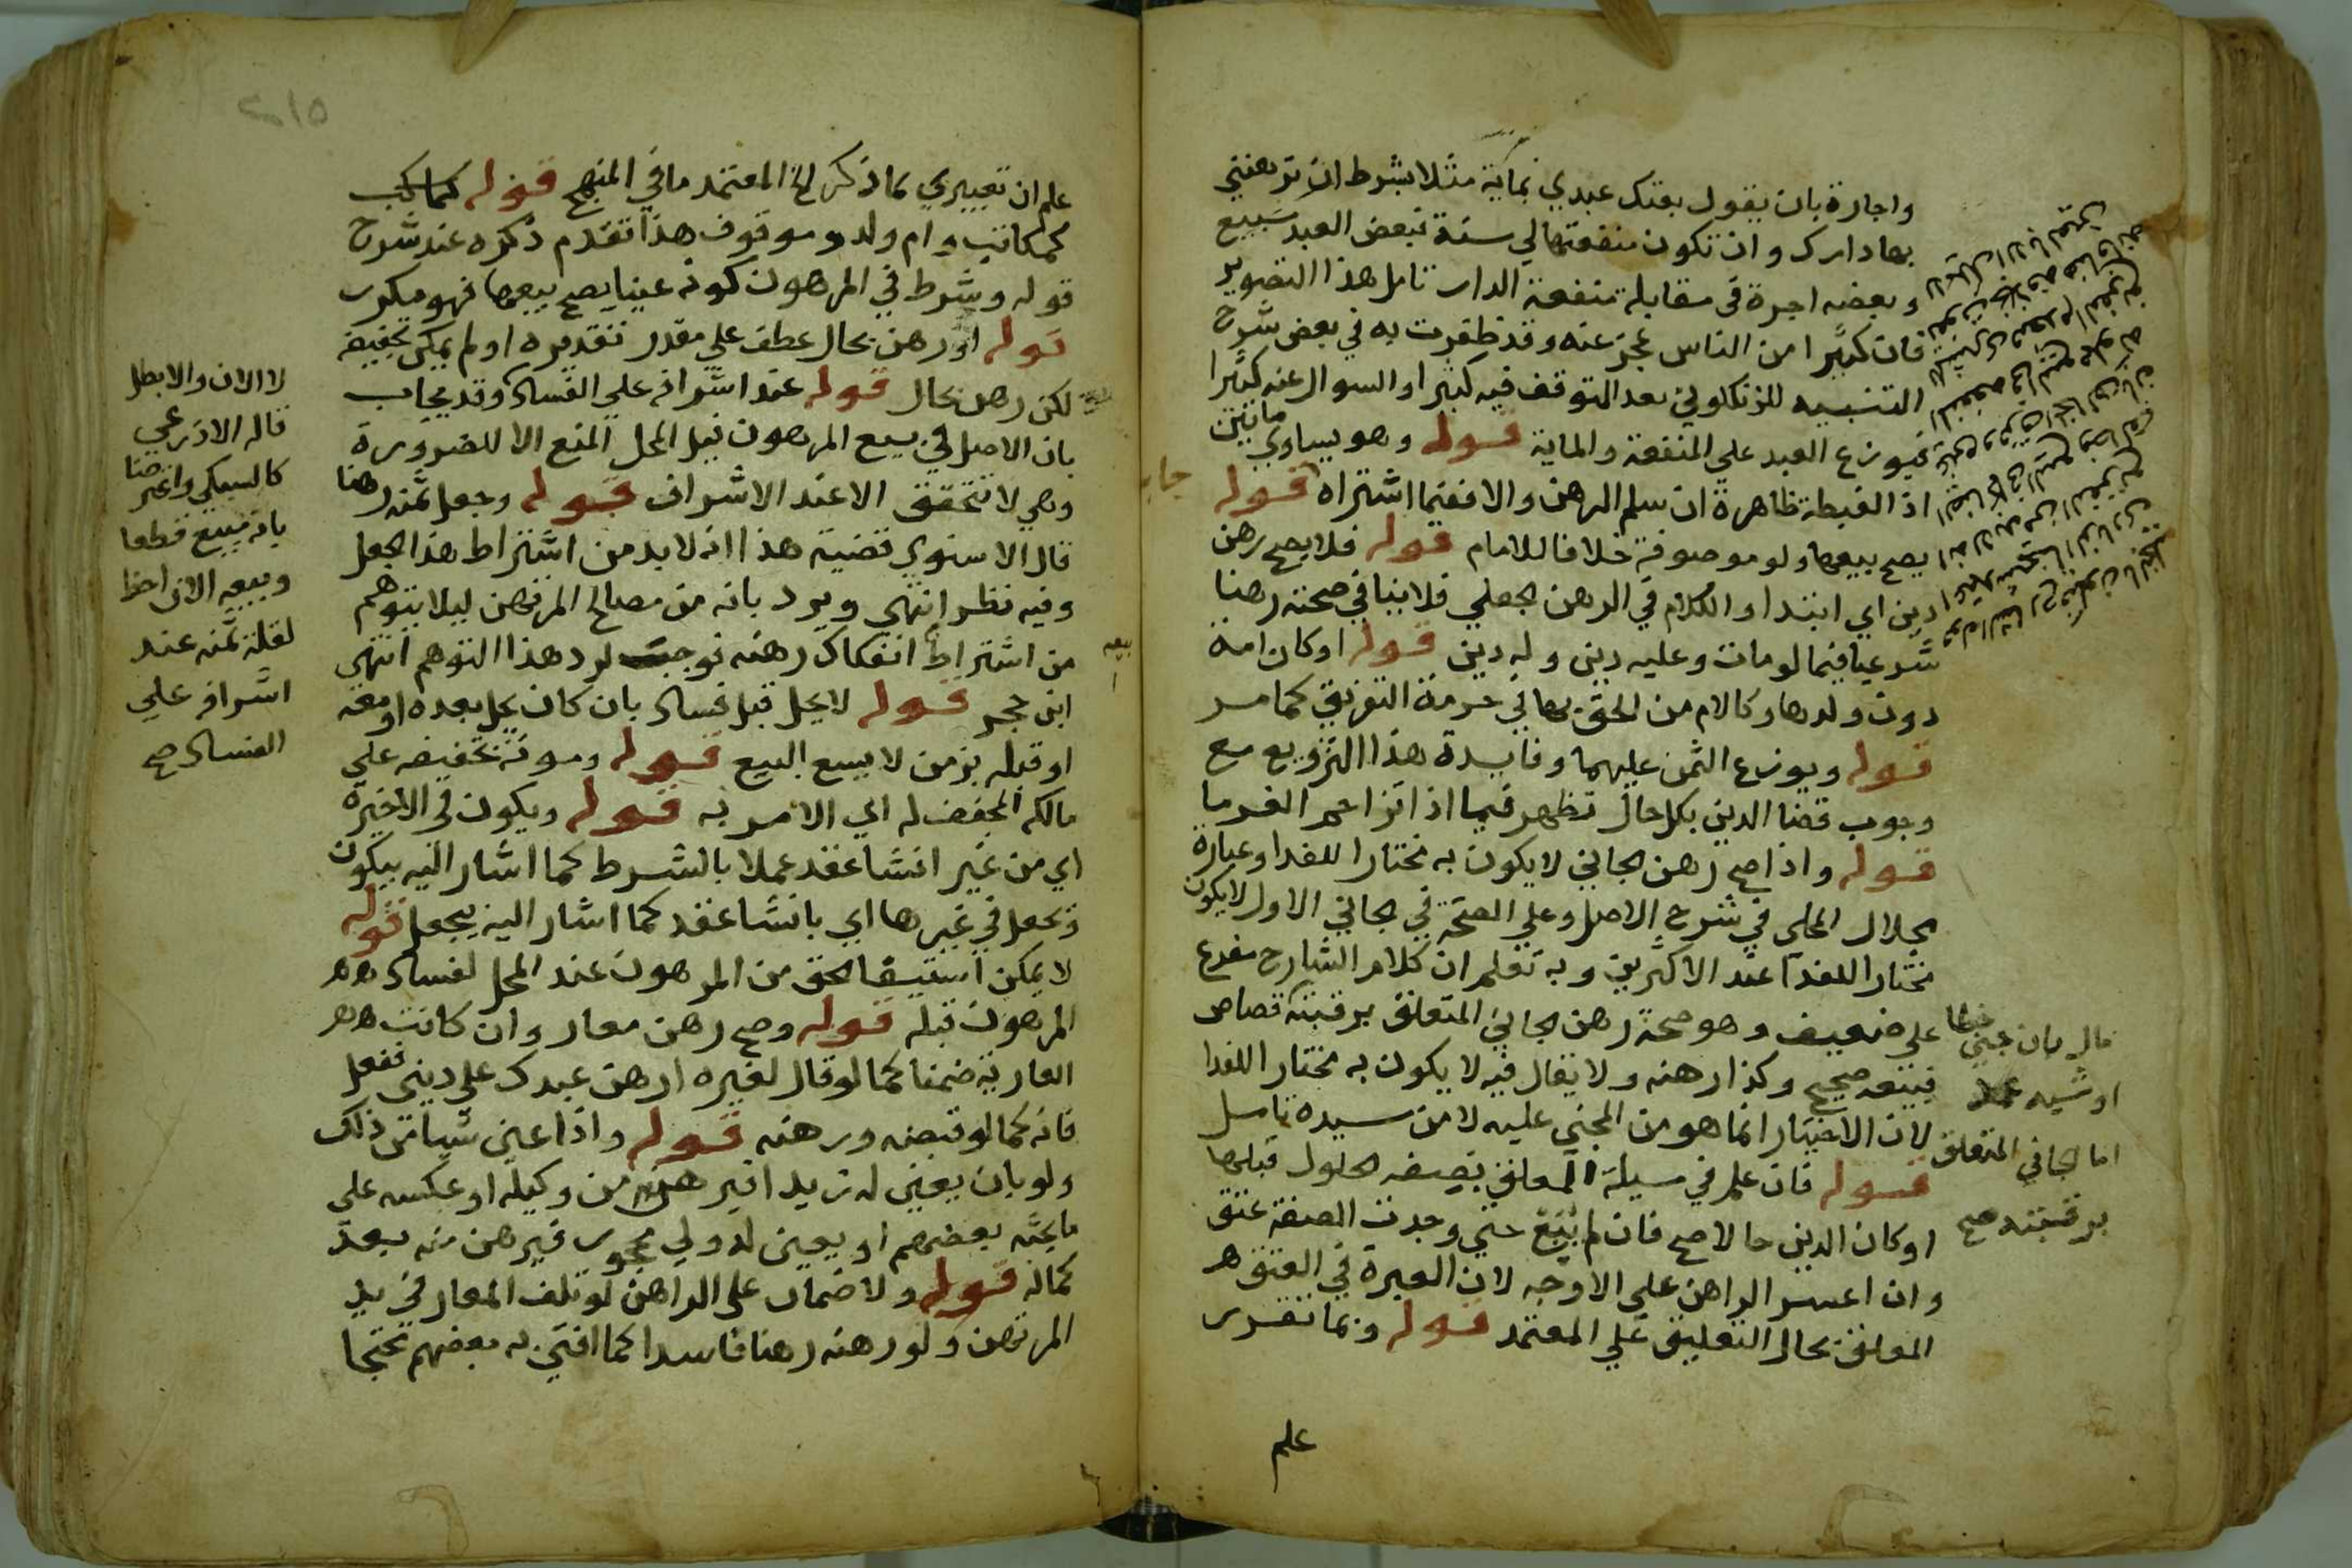 واجارة بان يقول بعتك عبدي بماية مثلا بشرط ان ترهنني
بها دارك وان تكون منفعتها لي سنة فبعض العبد مبيع
وبعضه اجرة في مقابلة منفعة الدار تامل هذا التصوير
فان كثيرا من الناس عجز عنه وقد ظفرت به في بعض شرح
التنبيه للزنكلوني بعد التوقف فيه كثيرا والسوال عنه كثيرا
فيوزع العبد علي المنفعة والماية قوله وهو يساوي مايتين
اذ الغبطة ظاهرة ان سلم الرهن والا ففيما اشتراه قوله
يصح بيعها ولو موصوفة خلافا للامام قوله فلا يصح رهن
دين اي ابتدا والكلام في الرهن الجعلي فلا ينافي صحته رهنا
شرعيا فيما لو مات وعليه دين وله دين قوله او كان امة
دون ولدها وكالام من الحق بها في حرمة التفريق كما مر
قوله ويوزع الثمن عليهما وفايدة هذا التوزيع مع
وجوب قضا الدين بكل حال تظهر فيما اذا تزاحم الغرما
قوله واذا صح رهن الجاني لا يكون به مختارا للفدا وعبارة
الجلال المحلي في شرح الاصل وعلي الصحة في الجاني الاول لا يكون
مختارا للفدا عند الاكثرين وبه تعلم ان كلام الشارح مفرع
علي ضعيف وهو صحة رهن الجاني المتعلق برقبته قصاص
فبيعه صحيح وكذا رهنه ولا يقال فيه لا يكون به مختارا للفدا
لان الاختيار انما هو من المجني عليه لا من سيده تامل
قوله فان علم في مسيلة المعلق بصفة الحلول قبلها
او كان الدين حالا صح فان لم يبع حتي وجدت الصفة عتق
وان اعسر الراهن علي الاوجه لان العبرة في العتق
المعلق بحال التعليق علي المعتمد قوله وبما تقرر
علم
مال بان جني خطا
او شبه عمد
اما الجاني المتعلق
برقبته صح
٢١٥
علم ان تعبيري بما ذكر الخ المعتمد ما في المنهج قوله
كمكاتب وام ولد وموقوف هذا تقدم ذكره عند شرح
قوله وشرط في المرهون كونه عينا يصح بيعها فهو مكرر
قوله او رهن بحال عطف علي مقدر تقديره او لم يمكن تجفيفه
لكن رهن بحال قوله عند اشرافه علي الفساد وقد يجاب
بان الاصل في بيع المرهون قبل المحل المنع الا للضرورة
وهي لا تتحقق الا عند الاشراف قوله وجعل ثمنه رهنا
قال الاسنوي قضية هذا انه لا بد من اشتراط هذا الجعل
وفيه نظر انتهي ويرد بانه من مصالح المرتهن ليلا يتوهم
من اشتراط انفكاك رهنه فوجب لرد هذا التوهم انتهي
ابن حجر قوله لا يحل قبل فساد بان كان يحل بعده او معه
او قبله بزمن لا يسع البيع قوله ومونة تجفيفه علي
مالكه المجفف له اي الامر به قوله ويكون في الاخيرة
اي من غير انشا عقد عملا بالشرط كما اشار اليه بيكون
وتجعل في غيرها اي بانشا عقد كما اشار اليه بيجعل قوله
لا يمكن استيفا الحق من المرهون عند المحل لفساد
المرهون قبله قوله وصح رهن معار وان كانت
العارية ضمنا كما لو قال لغيره ارهن عبدك علي ديني ففعل
فانه كما لو قبضه ورهنه قوله واذا عين شيا من ذلك
ولو بان يعين له زيد افير هن من وكيله او عكسه علي
ما بحثه بعضهم او يعين له ولي محجور فيرهن منه بعد
كماله قوله ولا ضمان علي الراهن لو تلف المعار في يد
المرتهن ولو رهنه رهنا فاسدا كما افتي به بعضهم محتجا
لا الان والا بطل
قاله الاذرعي
كالسبكي واعترضا
بانه مبيع قطعا
وبيعه الان احظ
لقلة ثمنه عند
اشرافه علي
الفساد صح